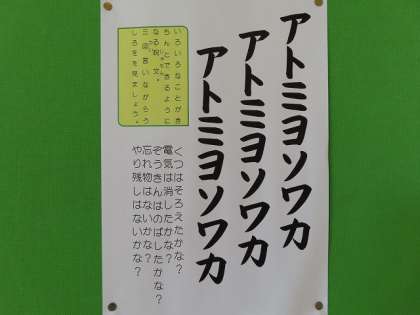 アトミヨソワカ
アトミヨソワカ
アトミヨソワカ
いろいろなことがき
ちんとできるように
なる呪文。
三回言いながらう
しろをを見ましょう。
くつはそろえたかな？
電気は消したかな？
ぞうきんはのばしたかな？
忘れ物はないかな？
やり残しはないかな？